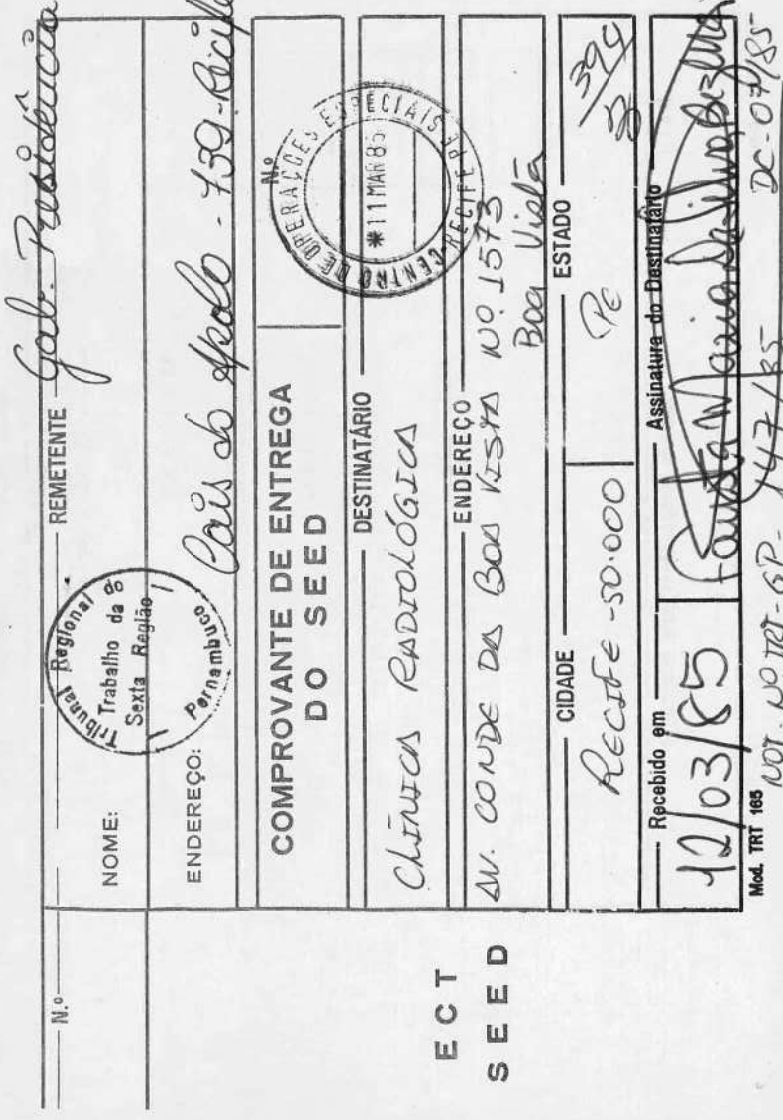 N.º
REMETENTE
Gab. Presidência
NOME:
Tribunal Regional
Trabalho da
Sexta Região
Pernambuco
ENDEREÇO: Cais do Apolo - 739 - Recife
COMPROVANTE DE ENTREGA
DO SEED
N.º
CENTRO DE OPERAÇÕES ESPECIAIS
*11 MAR 85
RECIFE PE
ECT
SEED
DESTINATÁRIO
CLÍNICA RADIOLÓGICA
ENDEREÇO
AV. CONDE DA BOA VISTA Nº 1573
Boa Vista
CIDADE
ESTADO
RECIFE - 50.000
PE
394
Recebido em
Assinatura do Destinatário
12/03/85
Maria da Silva
Mod. TRT 165
NOT. Nº TRT-GP- 147/85 DC-07/85